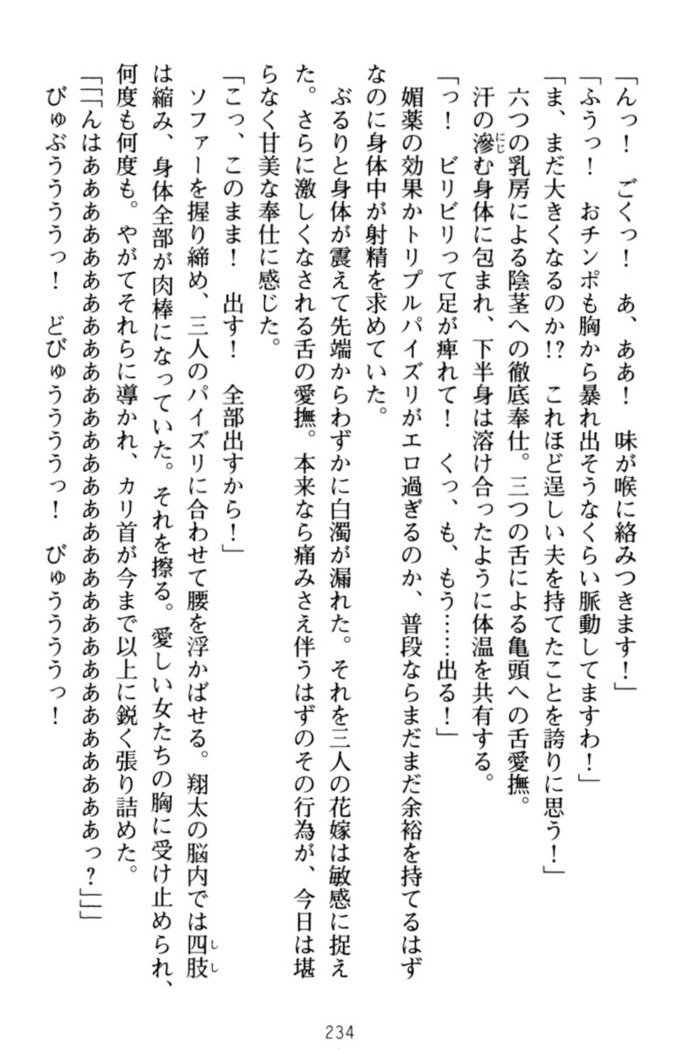 「んっ！　ごくっ！　あ、ああ！　味が喉に絡みつきます！」
「ふうっ！　おチンポも胸から暴れ出そうなくらい脈動してますわ！」
「ま、まだ大きくなるのか!?　これほど逞しい夫を持てたことを誇りに思う！」
六つの乳房による陰茎への徹底奉仕。三つの舌による亀頭への舌愛撫。
汗の滲む身体に包まれ、下半身は溶け合ったように体温を共有する。
「っ！　ビリビリって足が痺れて！　くっ、も、もう……出る！」
媚薬の効果かトリプルパイズリがエロ過ぎるのか、普段ならまだまだ余裕を持てるはず
なのに身体中が射精を求めていた。
ぶるりと身体が震えて先端からわずかに白濁が漏れた。それを三人の花嫁は敏感に捉え
た。さらに激しくなされる舌の愛撫。本来なら痛みさえ伴うはずのその行為が、今日は堪
らなく甘美な奉仕に感じた。
「こっ、このまま！　出す！　全部出すから！」
ソファーを握り締め、三人のパイズリに合わせて腰を浮かばせる。翔太の脳内では四肢
は縮み、身体全部が肉棒になっていた。それを擦る。愛しい女たちの胸に受け止められ、
何度も何度も。やがてそれらに導かれ、カリ首が今まで以上に鋭く張り詰めた。
「「「んはあああああああああああああああああああああああああああああああっ？」」」
びゅぶうううううっ！　どびゅううううっ！　びゅううううっ！
234